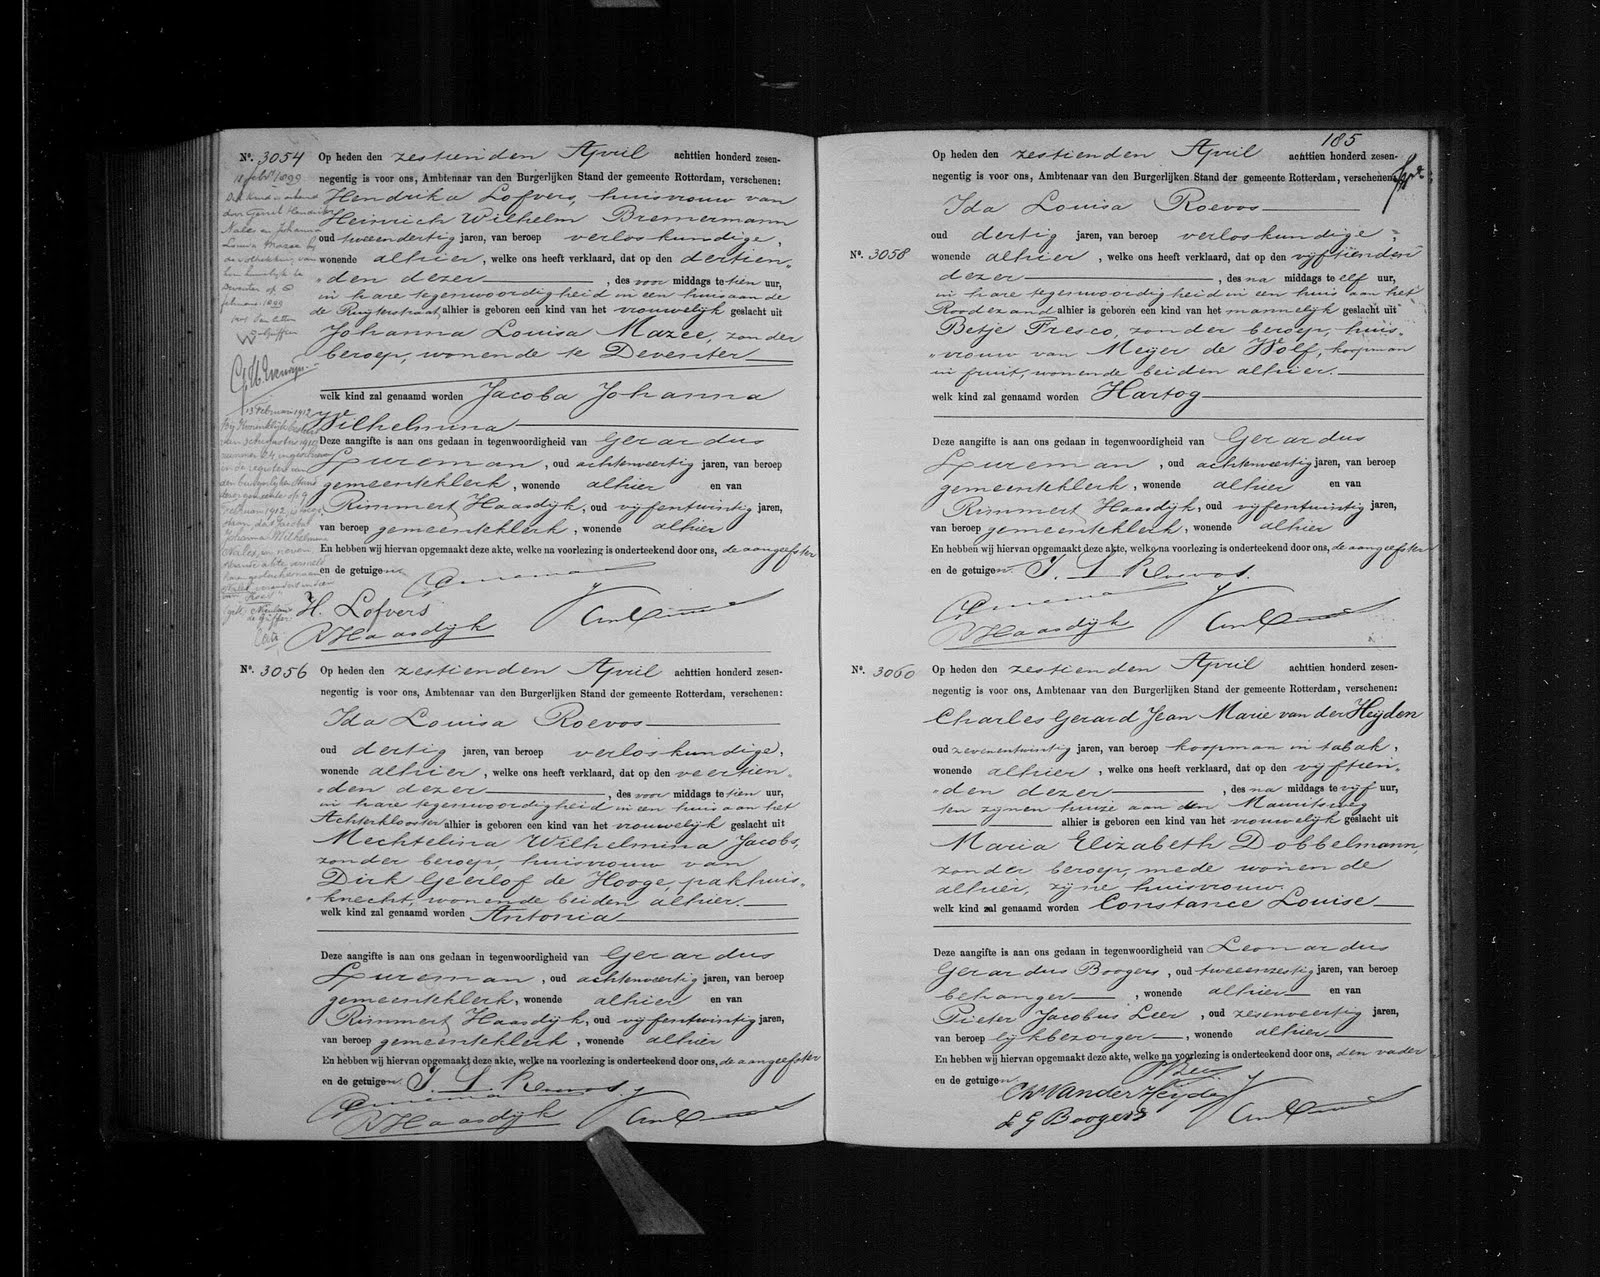 185
Nº. 3054 Op heden den zestienden April achttien honderd zesen-
negentig is voor ons, Ambtenaar van den Burgerlijken Stand der gemeente Rotterdam, verschenen:
Hendrika Lofvers, huisvrouw van
Heinrich Wilhelm Bremermann
oud tweeendertig jaren, van beroep verloskundige,
wonende alhier, welke ons heeft verklaard, dat op den dertien„
„den dezer, des voormiddags te tien uur,
in hare tegenwoordigheid in een huis aan de
de Ruyterstraat, alhier is geboren een kind van het vrouwelijk geslacht uit
Johanna Louisa Mazee, zonder
beroep, wonende te Deventer
welk kind zal genaamd worden Jacoba Johanna
Wilhelmina
Deze aangifte is aan ons gedaan in tegenwoordigheid van Gerardus
Lureman, oud achtenveertig jaren, van beroep
gemeenteklerk, wonende alhier en van
Rimmert Haasdijk, oud vijfentwintig jaren,
van beroep gemeenteklerk, wonende alhier
En hebben wij hiervan opgemaakt deze akte, welke na voorlezing is onderteekend door ons, de aangeefster
en de getuigen.
H. Lofvers
R Haasdijk
18 febr. 1899
Dit kind is erkend
door Gerrit Hendrik
Nales en Johanna
Louisa Mazee bij
de voltrekking van
hun huwelijk te
Deventer op
februari 1899
13 Februari 1912
Nº. 3056 Op heden den zestienden April achttien honderd zesen-
negentig is voor ons, Ambtenaar van den Burgerlijken Stand der gemeente Rotterdam, verschenen:
Ida Louisa Roevos
oud dertig jaren, van beroep verloskundige,
wonende alhier, welke ons heeft verklaard, dat op den veertien„
„den dezer, des voormiddags te tien uur,
in hare tegenwoordigheid in een huis aan het
Achterklooster alhier is geboren een kind van het vrouwelijk geslacht uit
Mechtelina Wilhelmina Jacobs,
zonder beroep, huisvrouw van
Dirk Geerlof de Hooge, pakhuis„
„knecht, wonende beiden alhier.
welk kind zal genaamd worden Antonia
Deze aangifte is aan ons gedaan in tegenwoordigheid van Gerardus
Lureman, oud achtenveertig jaren, van beroep
gemeenteklerk, wonende alhier en van
Rimmert Haasdijk, oud vijfentwintig jaren,
van beroep gemeenteklerk, wonende alhier
En hebben wij hiervan opgemaakt deze akte, welke na voorlezing is onderteekend door ons, de aangeefster
en de getuigen. I. L. Roevos.
R Haasdijk
Nº. 3058 Op heden den zestienden April achttien honderd zesen-
negentig is voor ons, Ambtenaar van den Burgerlijken Stand der gemeente Rotterdam, verschenen:
Ida Louisa Roevos
oud dertig jaren, van beroep verloskundige,
wonende alhier, welke ons heeft verklaard, dat op den vijftienden
dezer, des namiddags te elf uur,
in hare tegenwoordigheid in een huis aan het
Roodezand alhier is geboren een kind van het mannelijk geslacht uit
Betje Fresco, zonder beroep, huis„
„vrouw van Meijer de Wolf, koopman
in fruit, wonende beiden alhier.
welk kind zal genaamd worden Hartog
Deze aangifte is aan ons gedaan in tegenwoordigheid van Gerardus
Lureman, oud achtenveertig jaren, van beroep
gemeenteklerk, wonende alhier en van
Rimmert Haasdijk, oud vijfentwintig jaren,
van beroep gemeenteklerk, wonende alhier
En hebben wij hiervan opgemaakt deze akte, welke na voorlezing is onderteekend door ons, de aangeefster
en de getuigen. I. L. Roevos.
R Haasdijk
Nº. 3060 Op heden den zestienden April achttien honderd zesen-
negentig is voor ons, Ambtenaar van den Burgerlijken Stand der gemeente Rotterdam, verschenen:
Charles Gerard Jean Marie van der Heijden
oud zevenentwintig jaren, van beroep koopman in tabak,
wonende alhier, welke ons heeft verklaard, dat op den vijftien„
„den dezer, des namiddags te vijf uur,
ten zijnen huize aan den Mauritsweg
alhier is geboren een kind van het vrouwelijk geslacht uit
Maria Elizabeth Dobbelmann,
zonder beroep, mede wonende
alhier, zijne huisvrouw.
welk kind zal genaamd worden Constance Louise
Deze aangifte is aan ons gedaan in tegenwoordigheid van Leonardus
Gerardus Boogers, oud tweeenzestig jaren, van beroep
behanger, wonende alhier en van
Pieter Jacobus Leer, oud zesenveertig jaren,
van beroep lijkbezorger, wonende alhier
En hebben wij hiervan opgemaakt deze akte, welke na voorlezing is onderteekend door ons, den vader
en de getuigen.
van der Heijden
L G Boogers